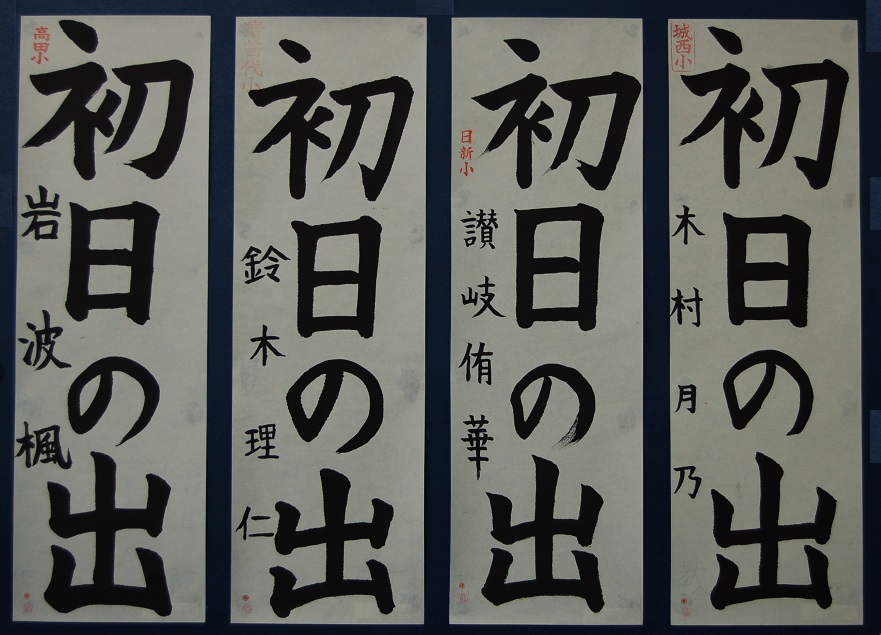 城西小
初日の出
木村月乃
日新小
初日の出
讃岐侑華
猪苗代小
初日の出
鈴木理仁
高田小
初日の出
岩波楓